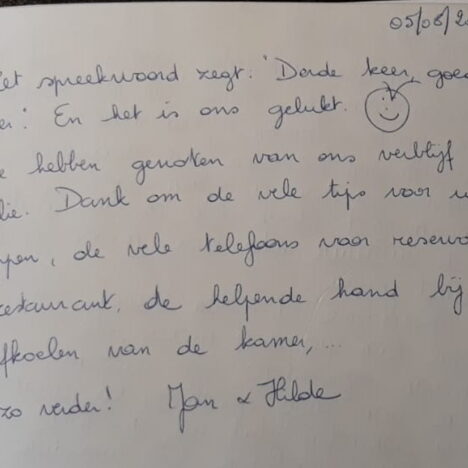 05/08/2
et spreekwoord zegt: 'Derde keer, goe
er'. En het is ons gelukt.
e hebben genoten van ons verblijf
lie. Dank om de vele tips voor u
pen, de vele telefoons voor reserva
restaurant, de helpende hand bij
fkoelen van de kamer, ...
zo verder! Jan & Hilde